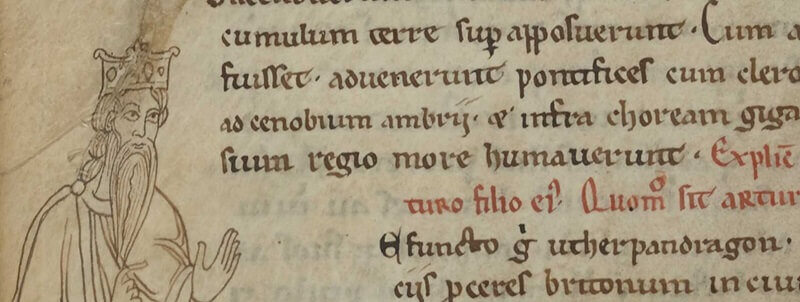 cumulum terre sup apposuerunt. Cum a
fuisset. aduenerunt pontifices cum clero
ad cenobium ambrij. & infra choream giga
sium regio more humauerunt. Explic̄
turo filio ei᾽. Quomᵒ sit artur
efuncto gͥ utherpandragon.
ciis pceres britonum in ciui